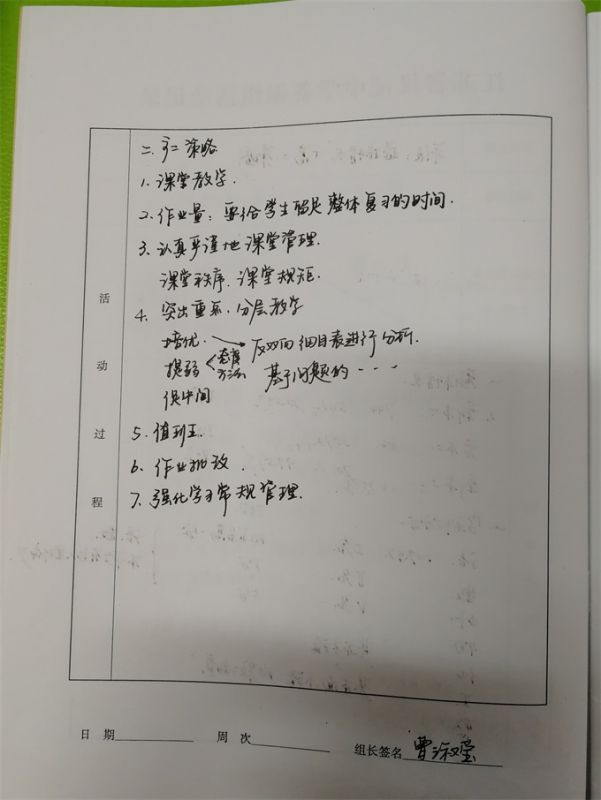 二.
策略
1. 课堂教学.
2. 作业量：要给学生留足整体复习的时间.
3. 认真严谨地课堂管理.
课堂秩序.课堂规矩.
4. 突出重点.分层教学
培优
反双向细目表进行分析.
提弱 态度
方法
基于问题的···
促中间
5. 值班.
6. 作业批改.
7. 强化学习常规管理.
活动过程
日 期 周 次 组长签名